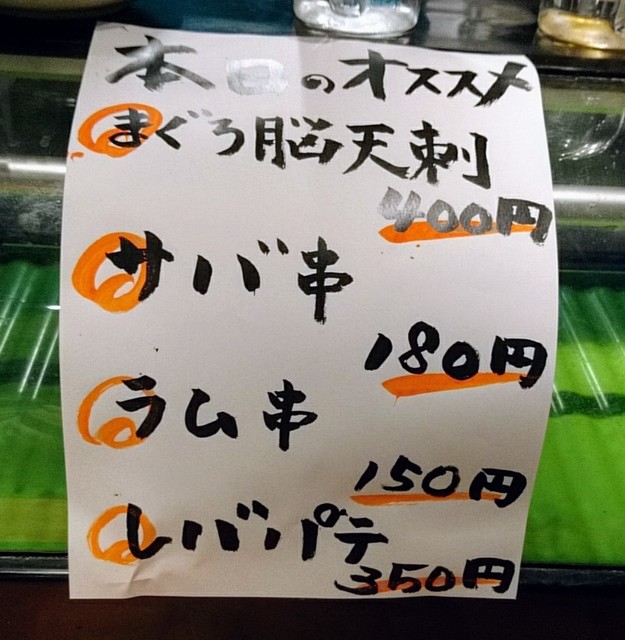 本日のオススメ
まぐろ脳天刺
400円
サバ串
180円
ラム串
150円
レバパテ
350円